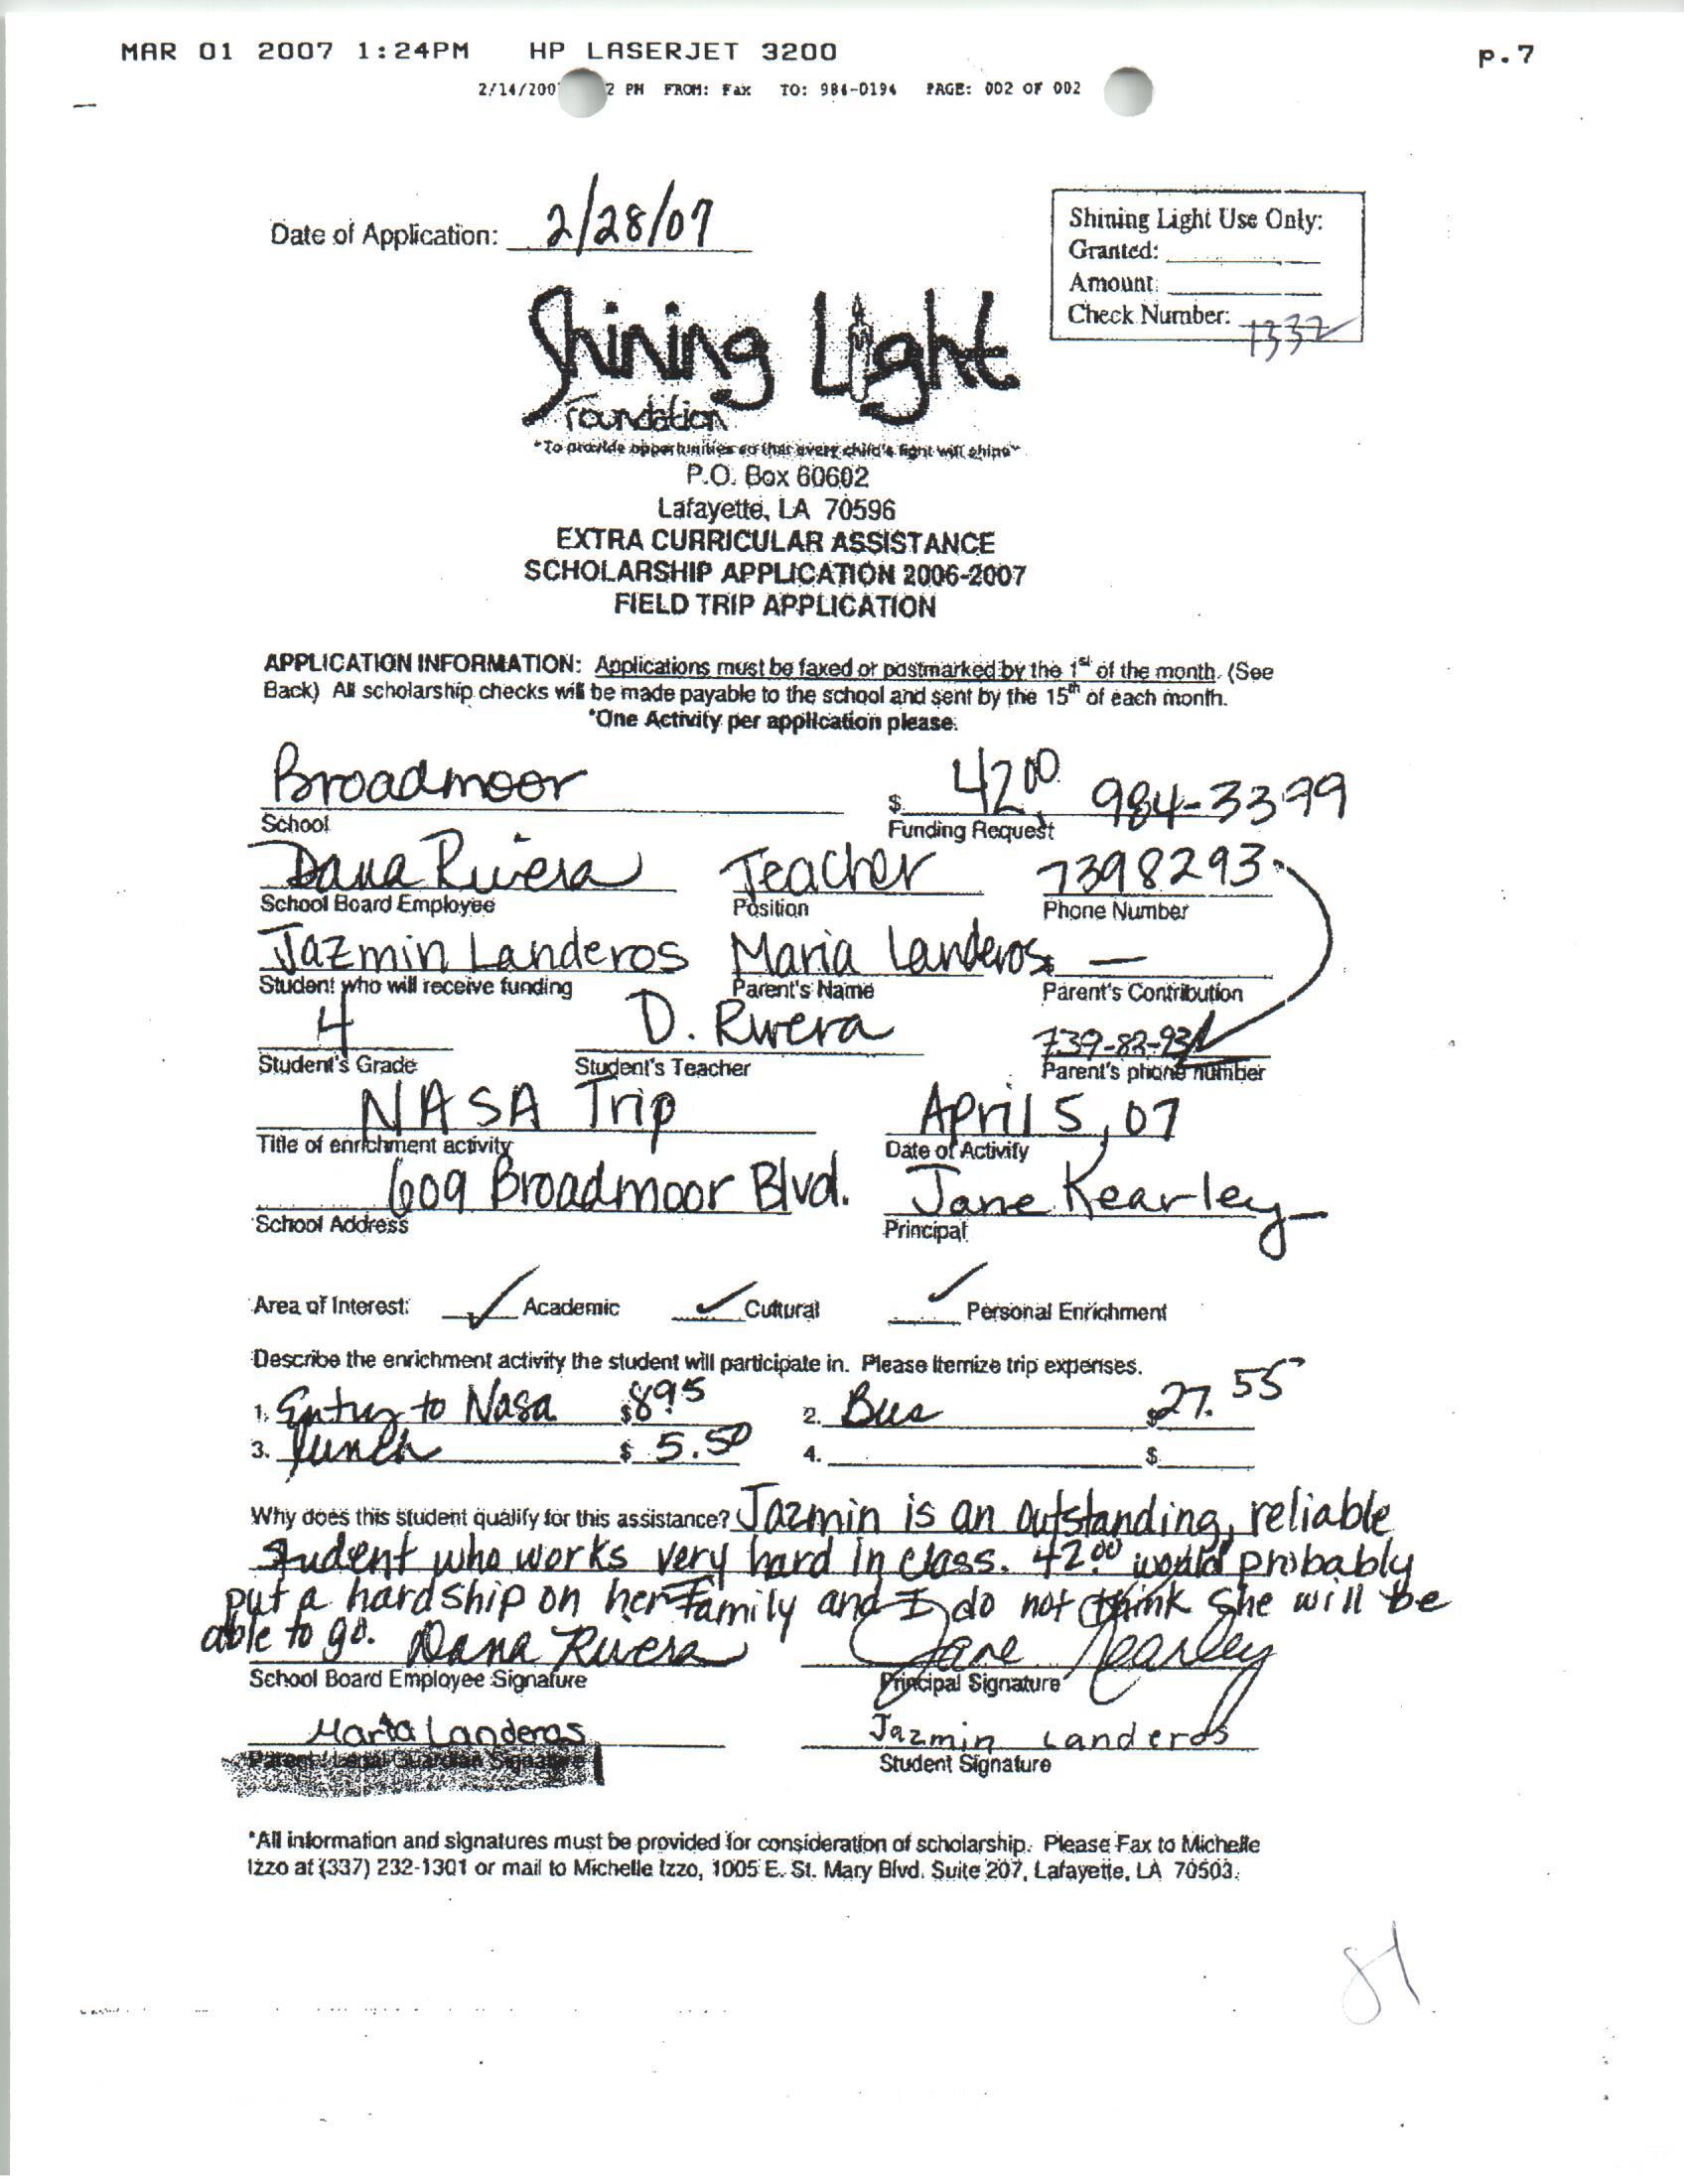 MAR 01 2007 1:24PM HP LASERJET 3200 p.7
2/14/200 2 PM FROM: Fax TO: 984-0194 PAGE: 002 OF 002
Date of Application: 2/28/07
Shining Light Use Only:
Granted:
Amount:
Check Number: 1332
Shining Light
Foundation
"To provide opportunities so that every child's light will shine"
P.O. Box 60602
Lafayette, LA 70596
EXTRA CURRICULAR ASSISTANCE
SCHOLARSHIP APPLICATION 2006-2007
FIELD TRIP APPLICATION
APPLICATION INFORMATION: Applications must be faxed or postmarked by the 1st of the month. (See
Back) All scholarship checks will be made payable to the school and sent by the 15th of each month.
*One Activity per application please.
Broadmoor $ 42.00 984-3399
School Funding Request
Dana Rivera Teacher 7398293
School Board Employee Position Phone Number
Jazmin Landeros Maria Landeros $ —
Student who will receive funding Parent's Name Parent's Contribution
4 D. Rivera 739-82-93
Student's Grade Student's Teacher Parent's phone number
NASA Trip April 5, 07
Title of enrichment activity Date of Activity
609 Broadmoor Blvd. Jane Kearley
School Address Principal
Area of Interest: ✓ Academic ✓ Cultural ✓ Personal Enrichment
Describe the enrichment activity the student will participate in. Please itemize trip expenses.
1. Entry to Nasa $8.95 2. Bus $27.55
3. lunch $ 5.50 4. $
Why does this student qualify for this assistance? Jazmin is an outstanding, reliable
student who works very hard in class. 42.00 would probably
put a hardship on her family and I do not think she will be
able to go. Dana Rivera Jane Kearley
School Board Employee Signature Principal Signature
Maria Landeros Jazmin Landeros
Parent/Legal Guardian Signature Student Signature
*All information and signatures must be provided for consideration of scholarship. Please Fax to Michelle
Izzo at (337) 232-1301 or mail to Michelle Izzo, 1005 E. St. Mary Blvd. Suite 207, Lafayette, LA 70503.